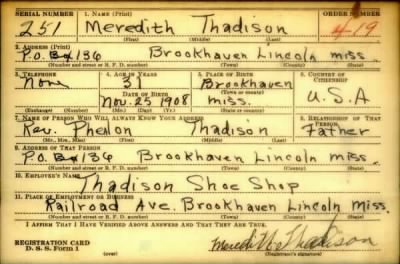 SERIAL NUMBER 1. NAME (Print) ORDER NUMBER
251 Meredith Thadison 419
(First) (Middle) (Last)
2. ADDRESS (Print)
P.O. Box 136 Brookhaven Lincoln miss.
(Number and street or R. F. D. number) (Town) (County) (State)
3. TELEPHONE 4. AGE IN YEARS 5. PLACE OF BIRTH 6. COUNTRY OF CITIZENSHIP
None 31 Brookhaven
DATE OF BIRTH (Town or county)
Nov. 25 1908 miss. U.S.A
(Exchange) (Number) (Mo.) (Day) (Yr.) (State or country)
7. NAME OF PERSON WHO WILL ALWAYS KNOW YOUR ADDRESS 8. RELATIONSHIP OF THAT PERSON
Rev. Phelon Thadison Father
(Mr., Mrs., Miss) (First) (Middle) (Last)
9. ADDRESS OF THAT PERSON
P.O. Box 136 Brookhaven Lincoln miss.
(Number and street or R. F. D. number) (Town) (County) (State)
10. EMPLOYER'S NAME
Thadison Shoe Shop
11. PLACE OF EMPLOYMENT OR BUSINESS
Railroad Ave. Brookhaven Lincoln Miss.
(Number and street or R. F. D. number) (Town) (County) (State)
I AFFIRM THAT I HAVE VERIFIED ABOVE ANSWERS AND THAT THEY ARE TRUE.
REGISTRATION CARD
D. S. S. Form 1 Meredith Thadison
(Registrant's signature)